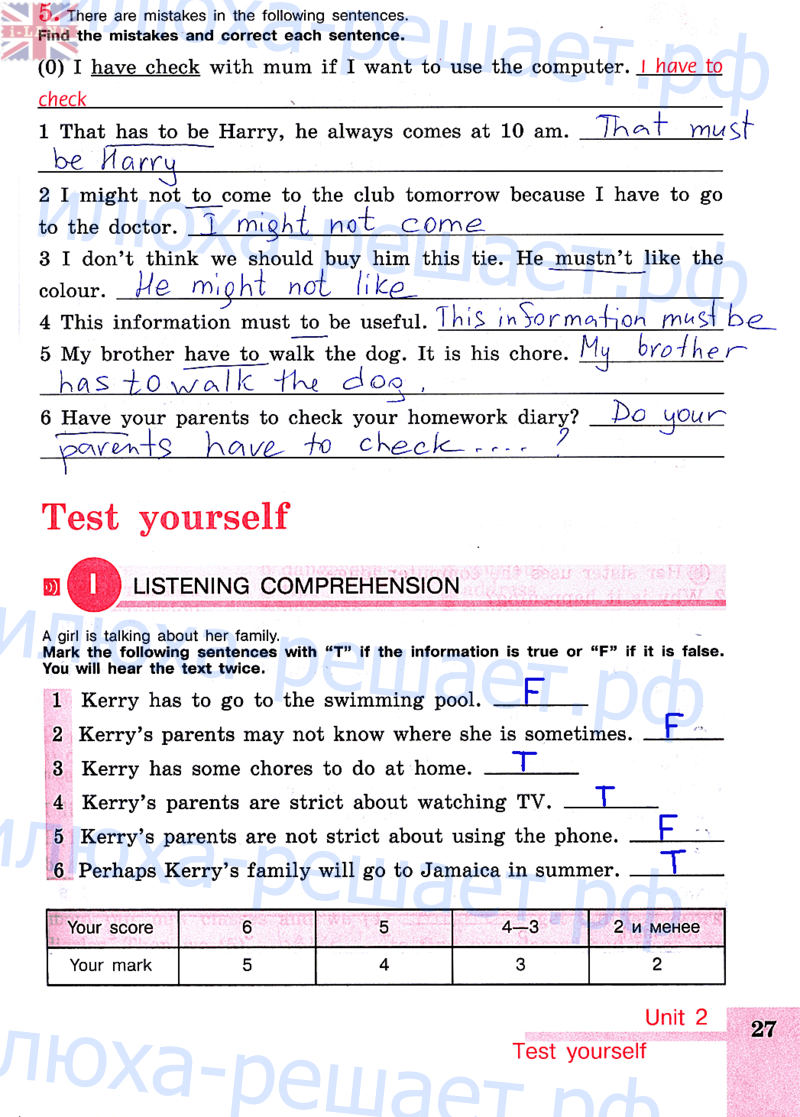 i-LAND
5. There are mistakes in the following sentences.
Find the mistakes and correct each sentence.
(0) I have check with mum if I want to use the computer. I have to
check
1 That has to be Harry, he always comes at 10 am. That must
be Harry
2 I might not to come to the club tomorrow because I have to go
to the doctor. I might not come
3 I don't think we should buy him this tie. He mustn't like the
colour. He might not like
4 This information must to be useful. This information must be
5 My brother have to walk the dog. It is his chore. My brother
has to walk the dog.
6 Have your parents to check your homework diary? Do your
parents have to check....?
Test yourself
I LISTENING COMPREHENSION
A girl is talking about her family.
Mark the following sentences with "T" if the information is true or "F" if it is false.
You will hear the text twice.
1 Kerry has to go to the swimming pool. F
2 Kerry's parents may not know where she is sometimes. F
3 Kerry has some chores to do at home. T
4 Kerry's parents are strict about watching TV. T
5 Kerry's parents are not strict about using the phone. F
6 Perhaps Kerry's family will go to Jamaica in summer. T
Your score 6 5 4—3 2 и менее
Your mark 5 4 3 2
Unit 2
27
Test yourself
илюха-решает.рф
илюха-решает.рф
илюха-решает.рф
илюха-решает.рф
илюха-решает.рф